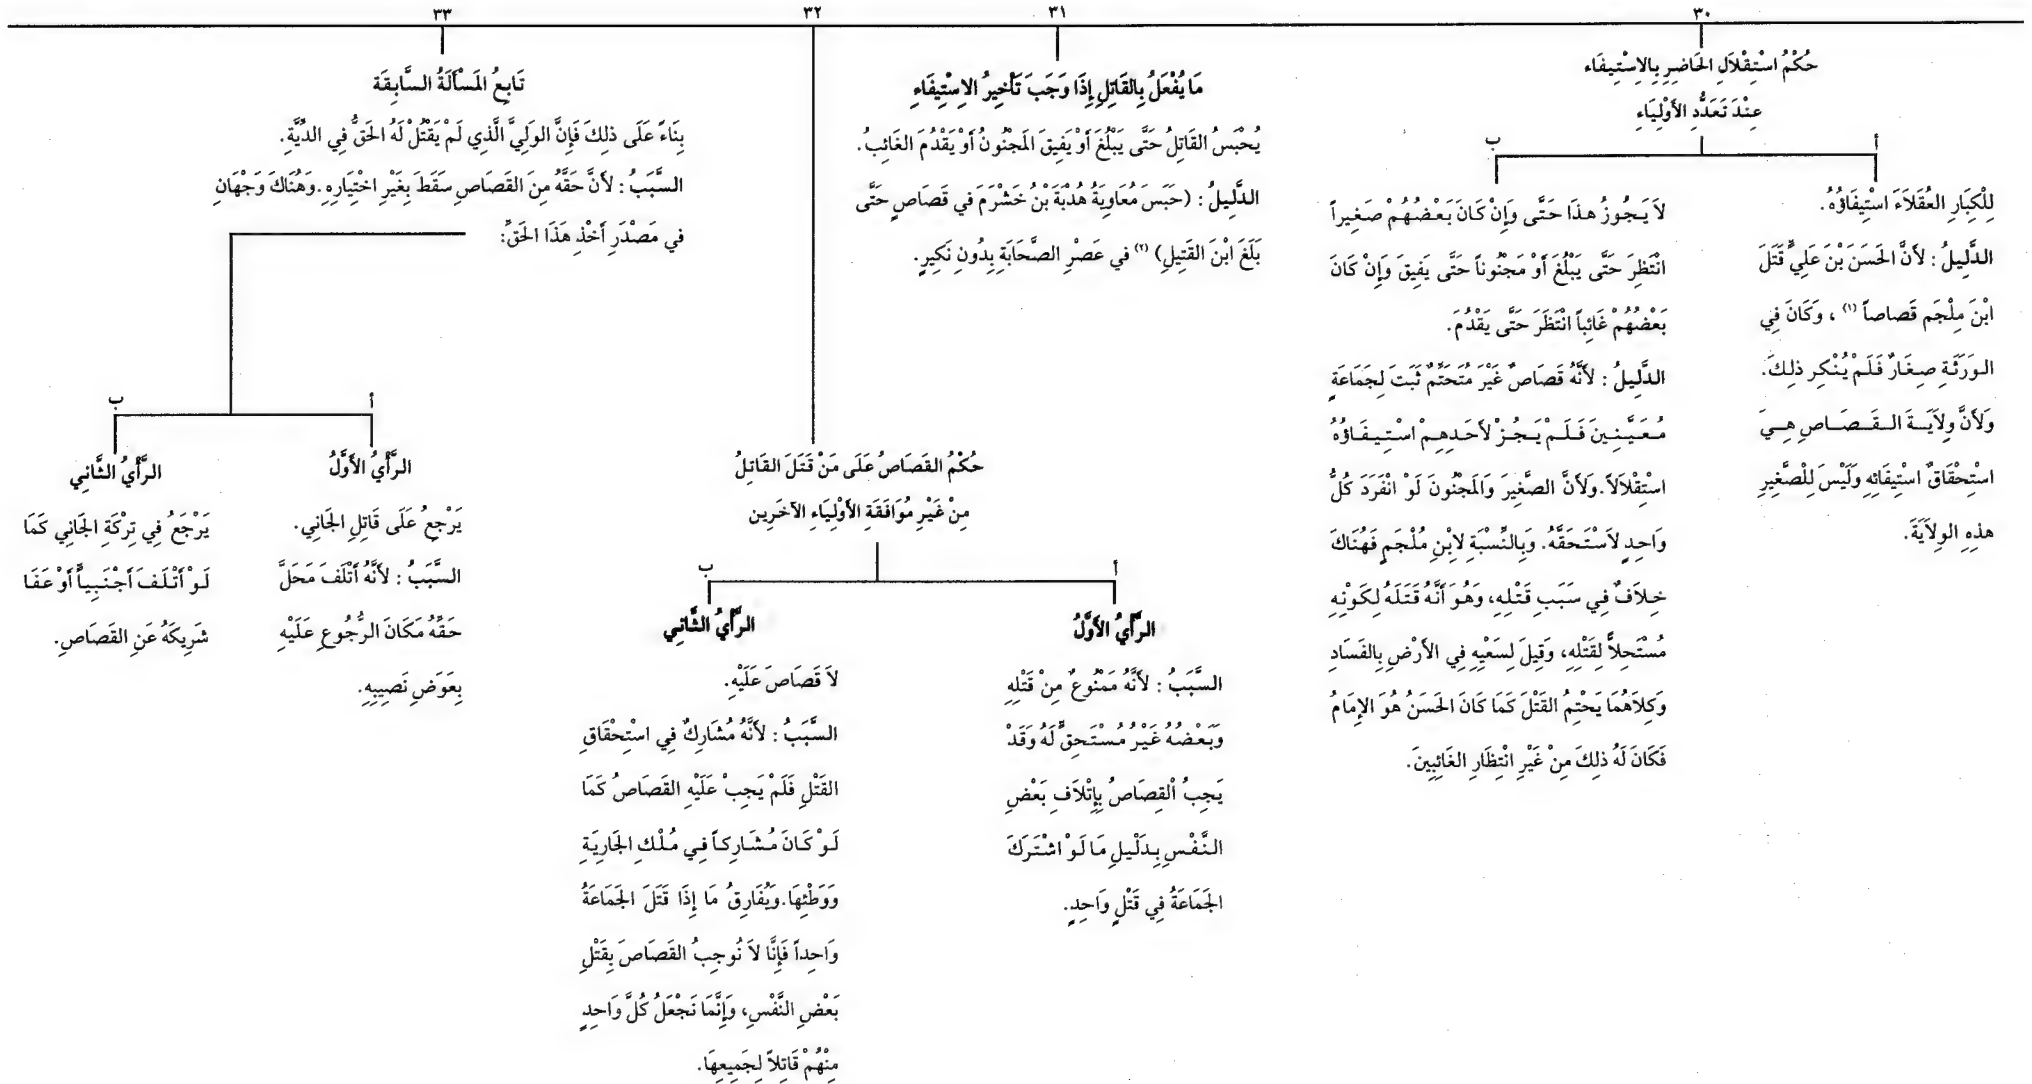 ٣٠
حُكْمُ اسْتِقْلَالِ الحَاضِرِ بِالاِسْتِيفَاء
عِنْدَ تَعَدُّدِ الأَوْلِيَاءِ
أ
لِلْكِبَارِ العُقَلَاءَ اسْتِيفَاؤُهُ.
الدَّلِيلُ : لأَنَّ الحَسَنَ بْنَ عَلِيٍّ قَتَلَ
ابْنَ مِلْجَم قَصَاصاً (١) ، وَكَانَ فِي
الوَرَثَةِ صِغَارٌ فَلَمْ يُنْكِر ذلِكَ.
وَلأَنَّ وِلاَيَةَ القَصَاصِ هِيَ
اسْتِحْقَاقٌ اسْتِيفَائِهِ وَلَيْسَ لِلْصَّغِيرِ
هذِهِ الوِلاَيَةَ.
ب
لاَ يَجُوزُ هذَا حَتَّى وَإِنْ كَانَ بَعْضُهُمْ صَغِيراً
انْتَظِرَ حَتَّى يَبْلُغَ أَوْ مَجْنُوناً حَتَّى يَفِيقَ وَإِنْ كَانَ
بَعْضُهُمْ غَائِباً انْتَظَرَ حَتَّى يَقْدُمَ.
الدَّلِيلُ : لأَنَّهُ قَصَاصٌ غَيْرَ مُتَحَتِّمٌ ثَبَتَ لِجَمَاعَةٍ
مُعَيَّنِينَ فَلَمْ يَجُزْ لأَحَدِهِمْ اسْتِيفَاؤُهُ
اسْتِقْلاَلاً. وَلأَنَّ الصَّغِيرَ وَالمَجْنُونَ لَوْ انْفَرَدَ كُلُّ
وَاحِدٍ لاَسْتَحَقَّهُ. وَبِالنِّسْبَةِ لاِبْنِ مُلْجَمٍ فَهُنَاكَ
خِلاَفٌ فِي سَبَبِ قَتْلِهِ، وَهُوَ أَنَّهُ قَتَلَهُ لِكَوْنِهِ
مُسْتَحِلاًّ لِقَتْلِهِ، وَقِيلَ لِسَعْيِهِ فِي الأَرْضِ بِالفَسَادِ
وَكِلاَهُمَا يَحْتِمُ القَتْلَ كَمَا كَانَ الحَسَنُ هُوَ الإِمَامُ
فَكَانَ لَهُ ذلِكَ مِنْ غَيْرِ انْتِظَارِ الغَائِبِينَ.
٣١
مَا يُفْعَلُ بِالقَاتِلِ إِذَا وَجَبَ تَأْخِيرُ الاِسْتِيفَاءِ
يُحْبَسُ القَاتِلُ حَتَّى يَبْلُغَ أَوْ يَفِيقَ المَجْنُونُ أَوْ يَقْدُمَ الغَائِبُ.
الدَّلِيلُ : (حَبَسَ مُعَاوِيَةُ هُدْبَةَ بْنُ خَشْرَمَ فِي قَصَاصٍ حَتَّى
بَلَغَ ابْنَ القَتِيلِ) (٢) فِي عَصْرِ الصَّحَابَةِ بِدُونِ نَكِيرٍ.
٣٢
حُكْمُ القَصَاصُ عَلَى مَنْ قَتَلَ القَاتِلُ
مِنْ غَيْرِ مُوَافَقَةِ الأَوْلِيَاءِ الآخَرِين
أ
الرَّأْيُ الأَوَّلُ
السَّبَبُ : لأَنَّهُ مَمْنُوعٌ مِنْ قَتْلِهِ
وَبَعْضُهُ غَيْرُ مُسْتَحِقٍّ لَهُ وَقَدْ
يَجِبُ الْقِصَاصُ بِإِتْلاَفِ بَعْضِ
النَّفْسِ بِدَلْيلِ مَا لَوْ اشْتَرَكَ
الجَمَاعَةُ فِي قَتْلٍ وَاحِدٍ.
ب
الرَّأْيُ الثَّانِي
لاَ قَصَاصَ عَلَيْهِ.
السَّبَبُ : لأَنَّهُ مُشَارِكٌ فِي اسْتِحْقَاقِ
القَتْلِ فَلَمْ يَجِبْ عَلَيْهِ القَصَاصُ كَمَا
لَوْ كَانَ مُشَارِكاً فِي مُلْكِ الجَارِيَةِ
وَوَطْئِهَا. وَيُفَارِقُ مَا إِذَا قَتَلَ الجَمَاعَةُ
وَاحِداً فَإِنَّا لاَ نُوجِبُ القَصَاصَ بِقَتْلِ
بَعْضِ النَّفْسِ، وَإِنَّمَا نَجْعَلُ كُلَّ وَاحِدٍ
مِنْهُمْ قَاتِلاً لِجَمِيعِهَا.
٣٣
تَابِعُ المَسْأَلَةُ السَّابِقَة
بِنَاءً عَلَى ذلِكَ فَإِنَّ الوَلِيَّ الَّذِي لَمْ يَقْتُلْ لَهُ الحَقُّ فِي الدِّيَّةِ.
السَّبَبُ : لأَنَّ حَقَّهُ مِنَ القَصَاصِ سَقَطَ بِغَيْرِ اخْتِيَارِهِ. وَهُنَاكَ وَجْهَانِ
فِي مَصْدَرِ أَخْذِ هَذَا الحَقِّ:
أ
الرَّأْيُ الأَوَّلُ
يَرْجِعُ عَلَى قَاتِلِ الجَانِي.
السَّبَبُ : لأَنَّهُ أَتْلَفَ مَحَلَّ
حَقِّهُ مَكَانَ الرُّجُوعِ عَلَيْهِ
بِعَوَضِ نَصِيبِهِ.
ب
الرَّأْيُ الثَّانِي
يَرْجَعُ فِي تِرْكَةِ الجَانِي كَمَا
لَوْ أَتْلَفَ أَجْنَبِياًّ أَوْ عَفَا
شَرِيكَهُ عَنِ القَصَاصِ.